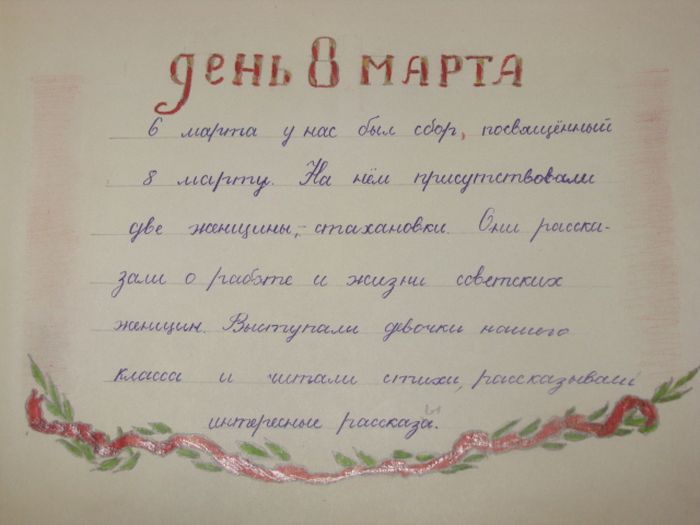 день 8 марта
6 марта у нас был сбор, посвящённый
8 марту. На нём присутствовали
две женщины,- стахановки. Они расска-
зали о работе и жизни советских
женщин. Выступали девочки нашего
класса и читали стихи, рассказывали
интересные рассказы.